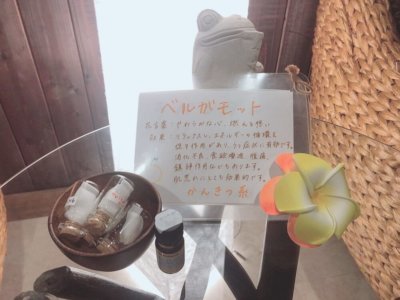 ベルガモット
花言葉:やわらかな心、燃える想い
効果:リラックスし、エネルギーの循環を
促す作用があり、うつ症状に有効です。
消化不良、食欲増進、腹痛、
鎮静作用などもあります。
肌荒れにとても効果的です。
かんきつ系